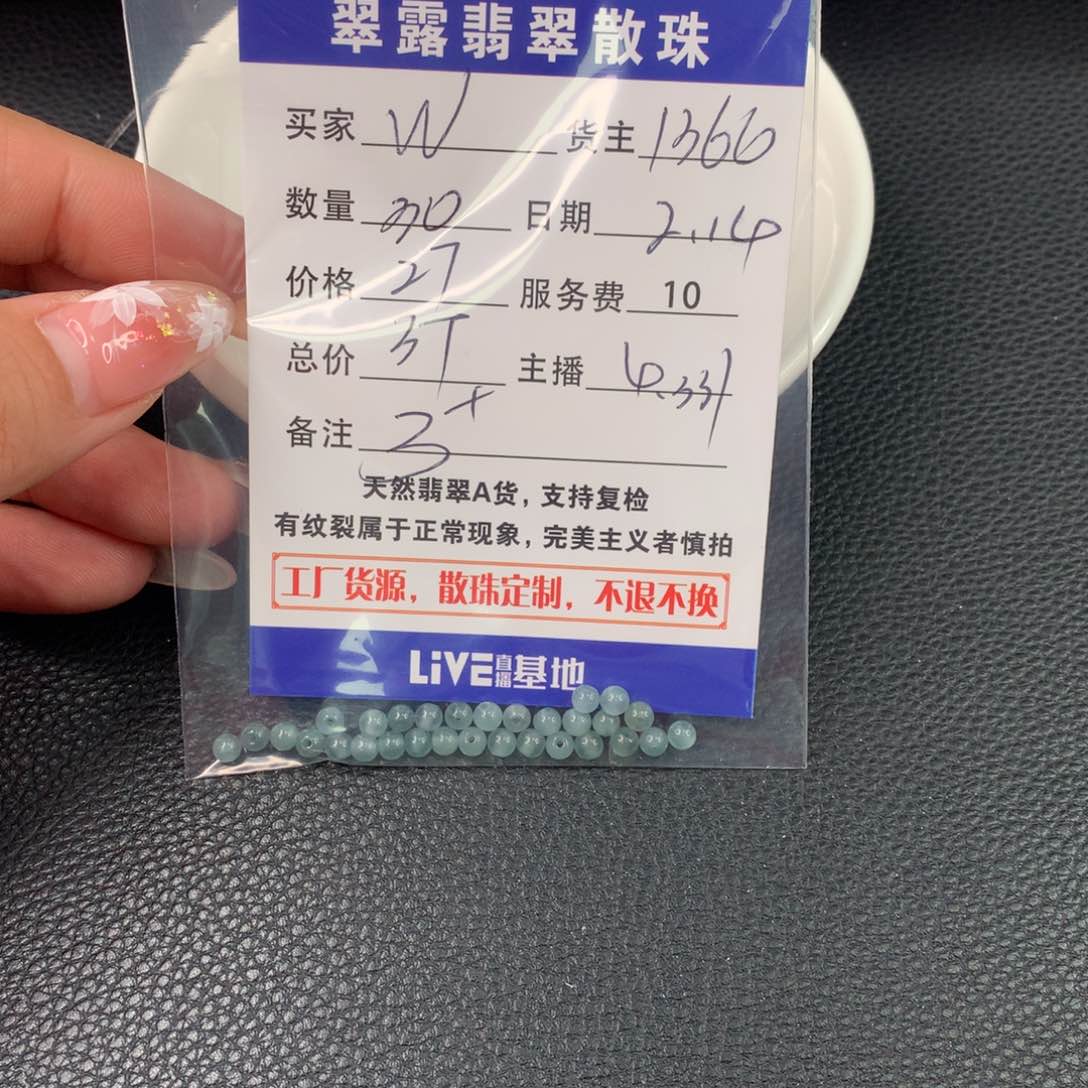 翠露翡翠散珠
买家 W 货主 1366
数量 30 日期 2.14
价格 27 服务费 10
总价 37 主播
备注 3+
天然翡翠A货，支持复检
有纹裂属于正常现象，完美主义者慎拍
工厂货源，散珠定制，不退不换
LiVE直播基地